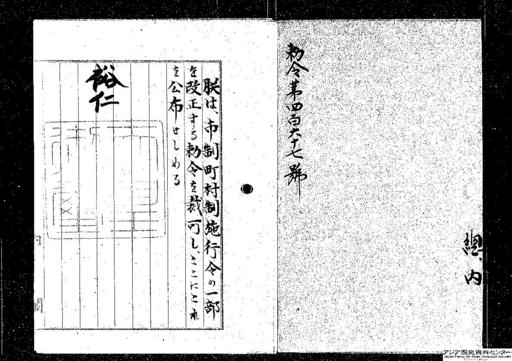 勅令第四百六十七號
總、内
朕は、市制町村制施行令の一部
を改正する勅令を裁可し、ここにこれ
を公布せしめる
裕仁
アジア歴史資料センター